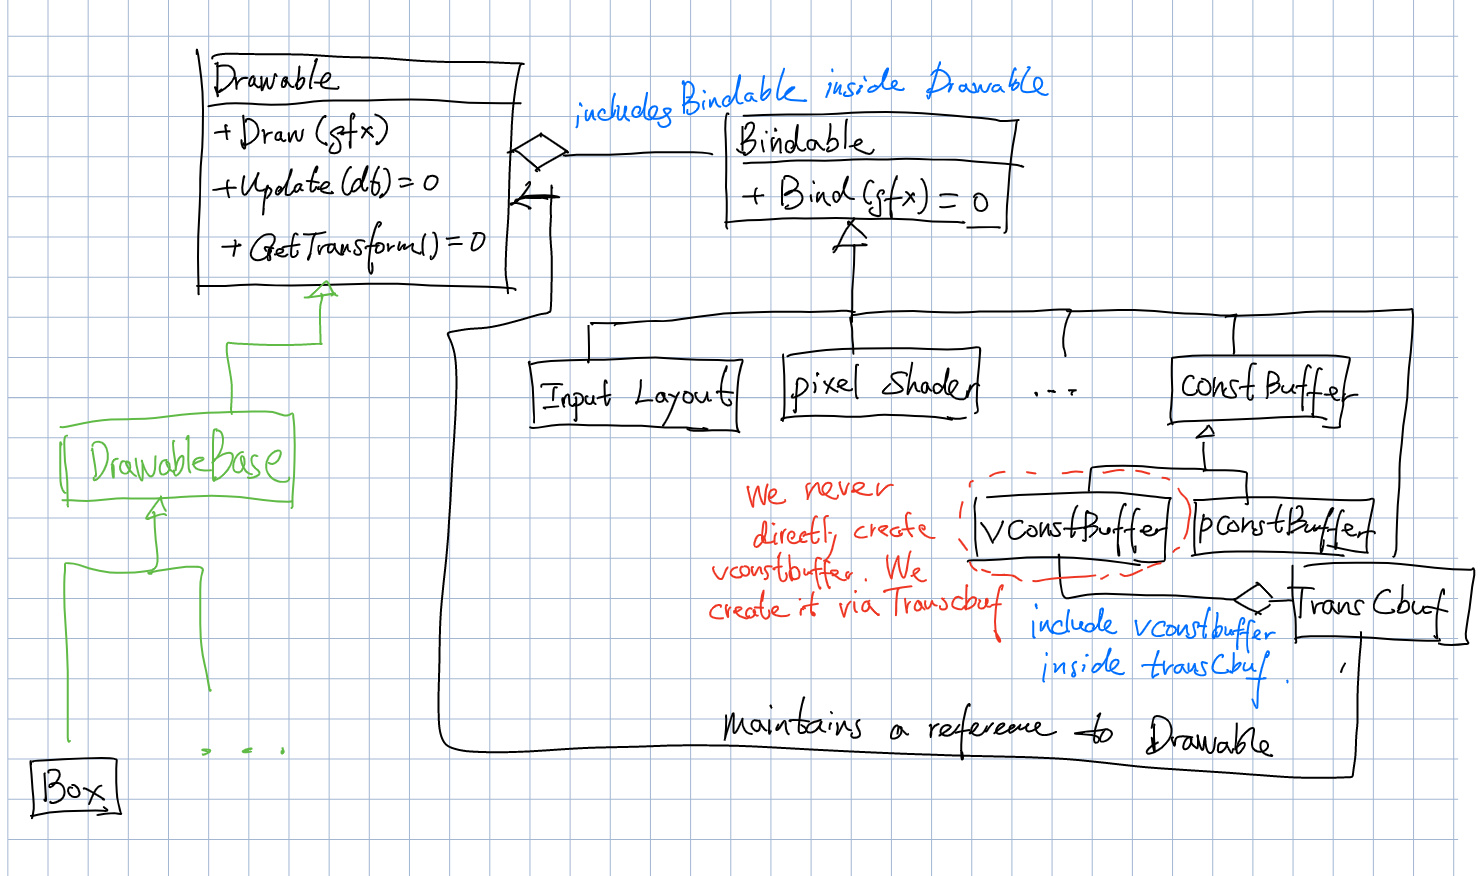 Drawable
+ Draw (gfx)
+ Update (dt) = 0
+ GetTransform() = 0
includes Bindable inside Drawable
Bindable
+ Bind (gfx) = 0
Input Layout
pixel Shader
...
constBuffer
DrawableBase
We never
directly create
vconstbuffer. We
create it via Transcbuf
vconstBuffer
pconstBuffer
TransCbuf
include vconstbuffer
inside transCbuf.
maintains a reference to Drawable
...
Box